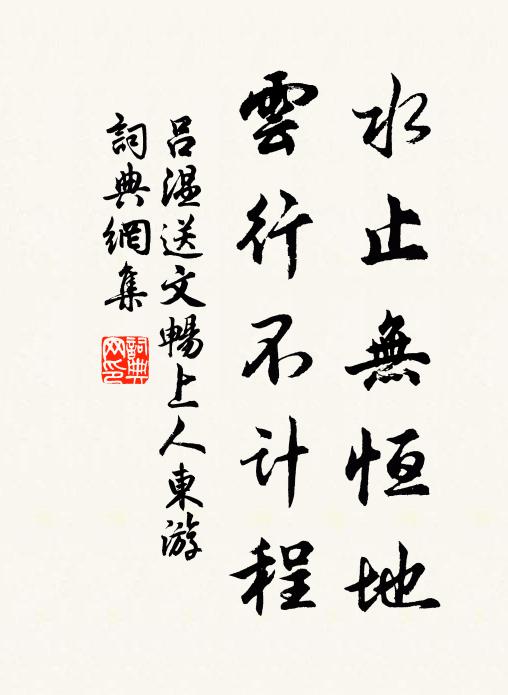 水止無恒地
雲行不计程
吕温送文暢上人東游
詞典網集
詞典網印